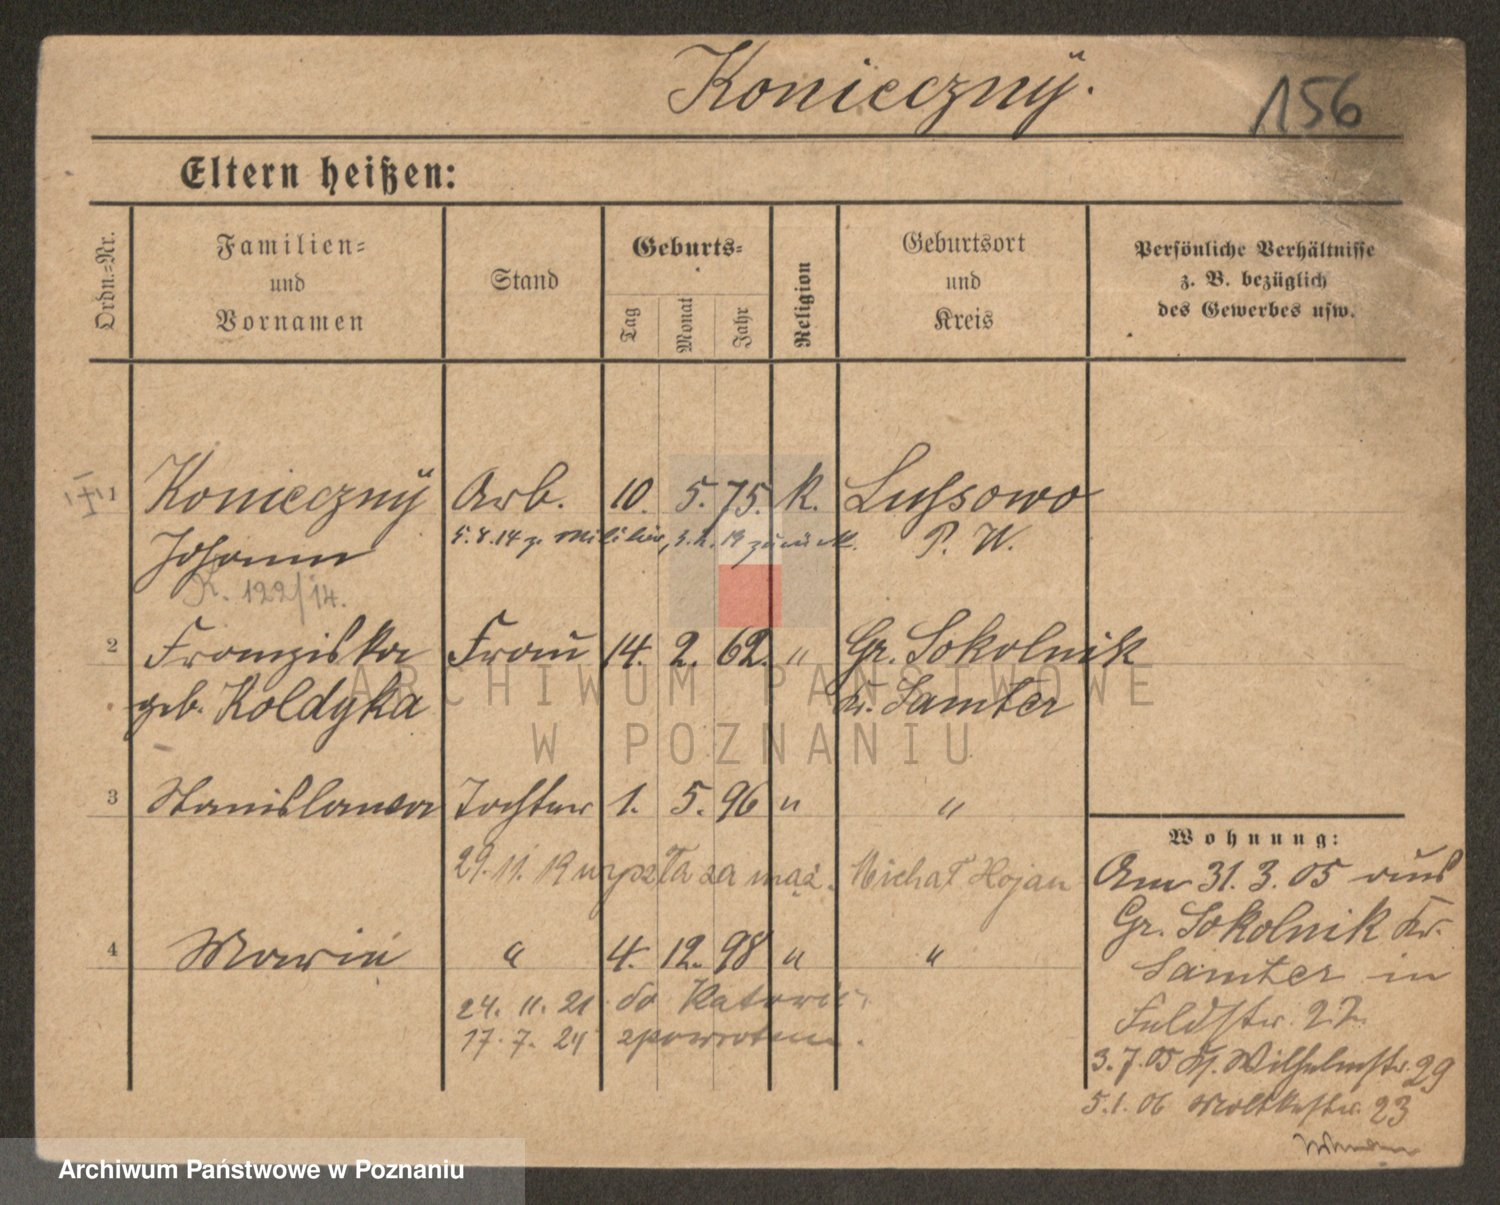 Konieczny.
156
Eltern heißen:
Ordn.=Nr.
Familien=
und
Vornamen
Stand
Geburts=
Tag
Monat
Jahr
Religion
Geburtsort
und
Kreis
Persönliche Verhältnisse
z. B. bezüglich
des Gewerbes usw.
1 Konieczny Arb. 10. 5. 75. k. Lussowo
Johann 5.8.14 z. Militär, 3.2.19 zurück. P. W.
K. 122/14.
2 Franziska Frau 14. 2. 62. " Gr. Sokolnik
geb. Koldyka Kr. Samter
3 Stanislawa Tochter 1. 5. 96 " "
29. 11. 19 wyszła za mąż. Michał Hojan
4 Maria " 4. 12. 98 " "
24. 11. 21 do Katowic
17. 7. 24 zpowrotem.
Wohnung:
Am 31. 3. 05 aus
Gr. Sokolnik Kr.
Samter in
Feldstr. 22.
3.7.05 Wilhelmstr. 29
5.1.06 Moltkestr. 23
ARCHIWUM PAŃSTWOWE
W POZNANIU
Archiwum Państwowe w Poznaniu